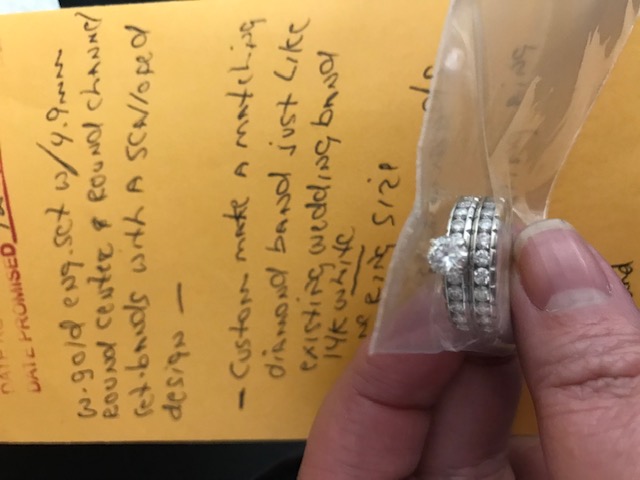 DATE PROMISED
W. gold eng. set w/4.9mm
Round center & Round channel
set-bands with A scalloped
design —
- Custom make A matching
diamond band just Like
existing wedding band
14K white
Ring size